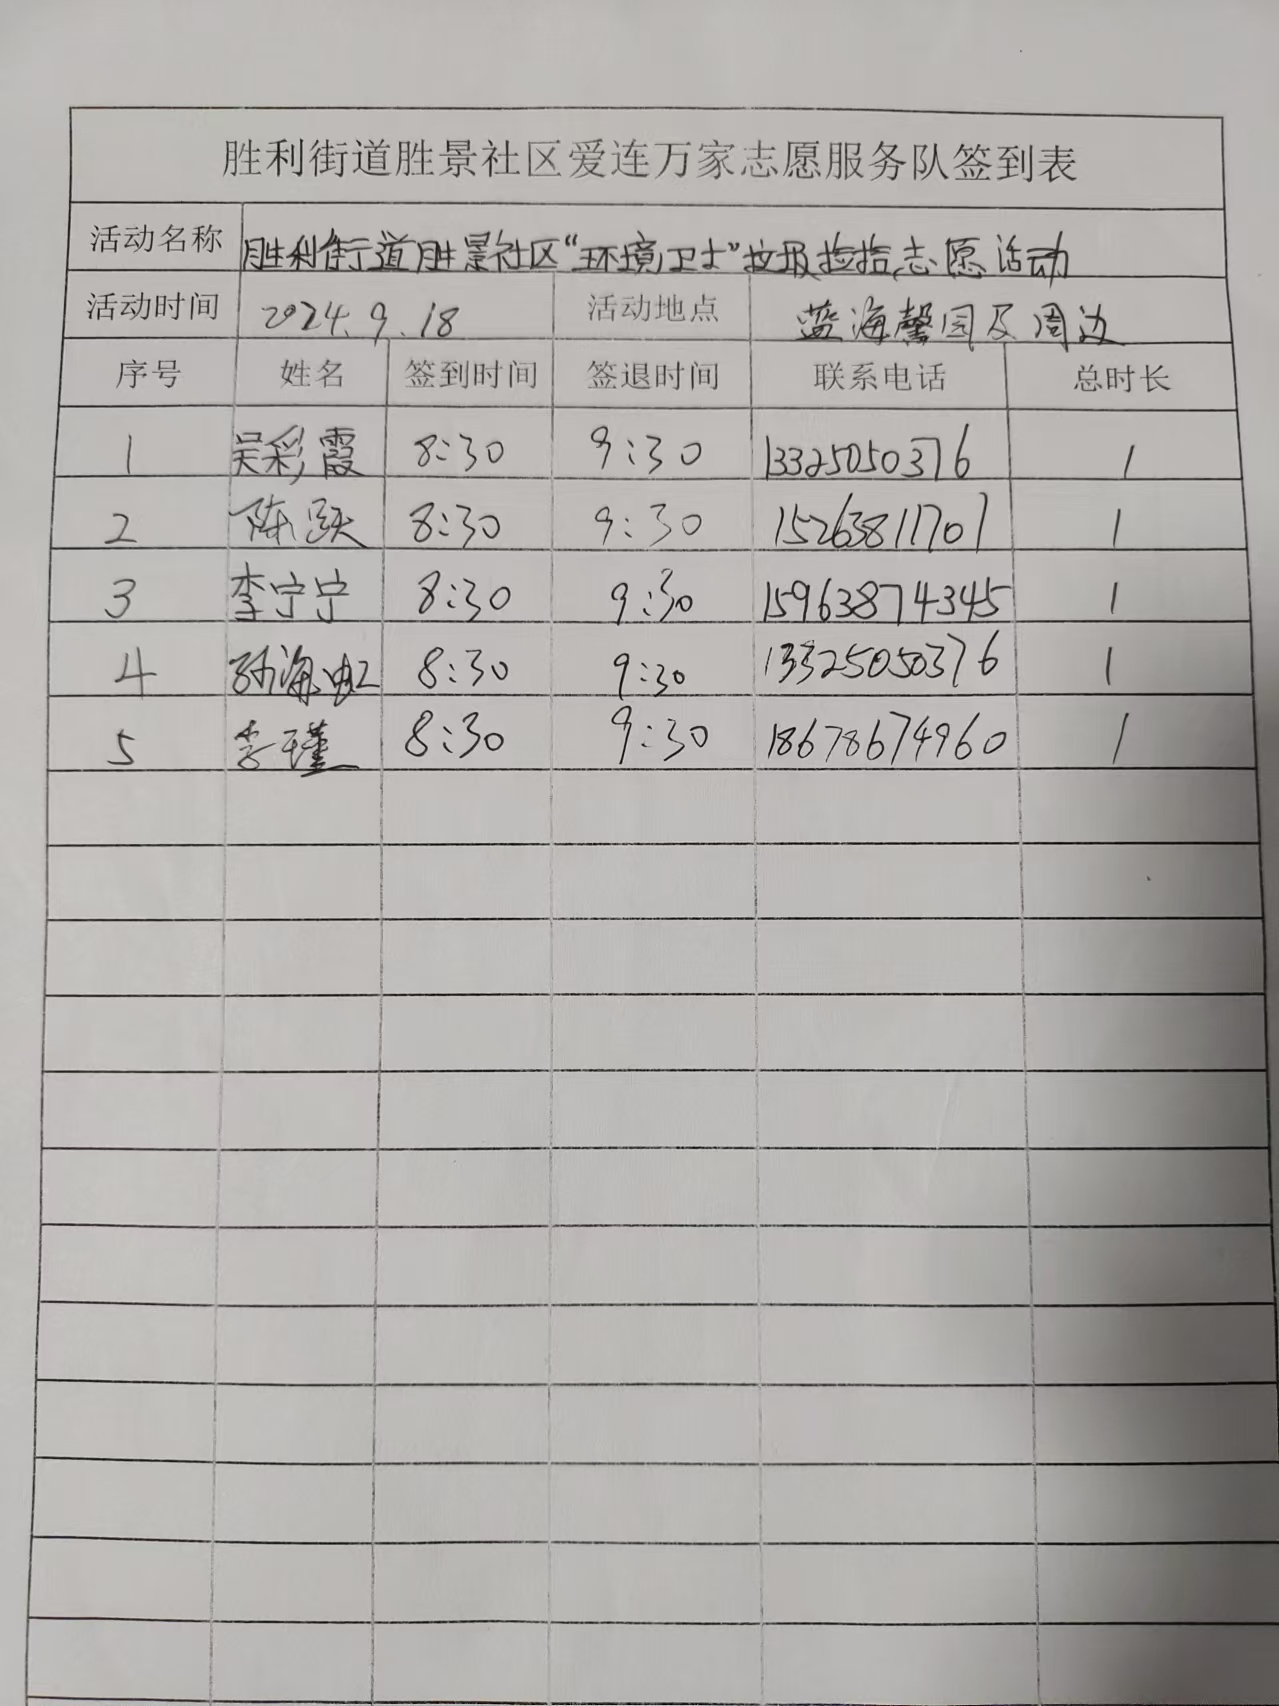 胜利街道胜景社区爱连万家志愿服务队签到表
活动名称 胜利街道胜景社区“环境卫士”垃圾捡拾志愿活动
活动时间 2024.9.18 活动地点 蓝海馨园及周边
序号 姓名 签到时间 签退时间 联系电话 总时长
1 吴彩霞 8:30 9:30 13325050376 1
2 陈跃 8:30 9:30 15263811701 1
3 李宁宁 8:30 9:30 15963874345 1
4 孙海虹 8:30 9:30 13325050376 1
5 李瑾 8:30 9:30 18678674960 1